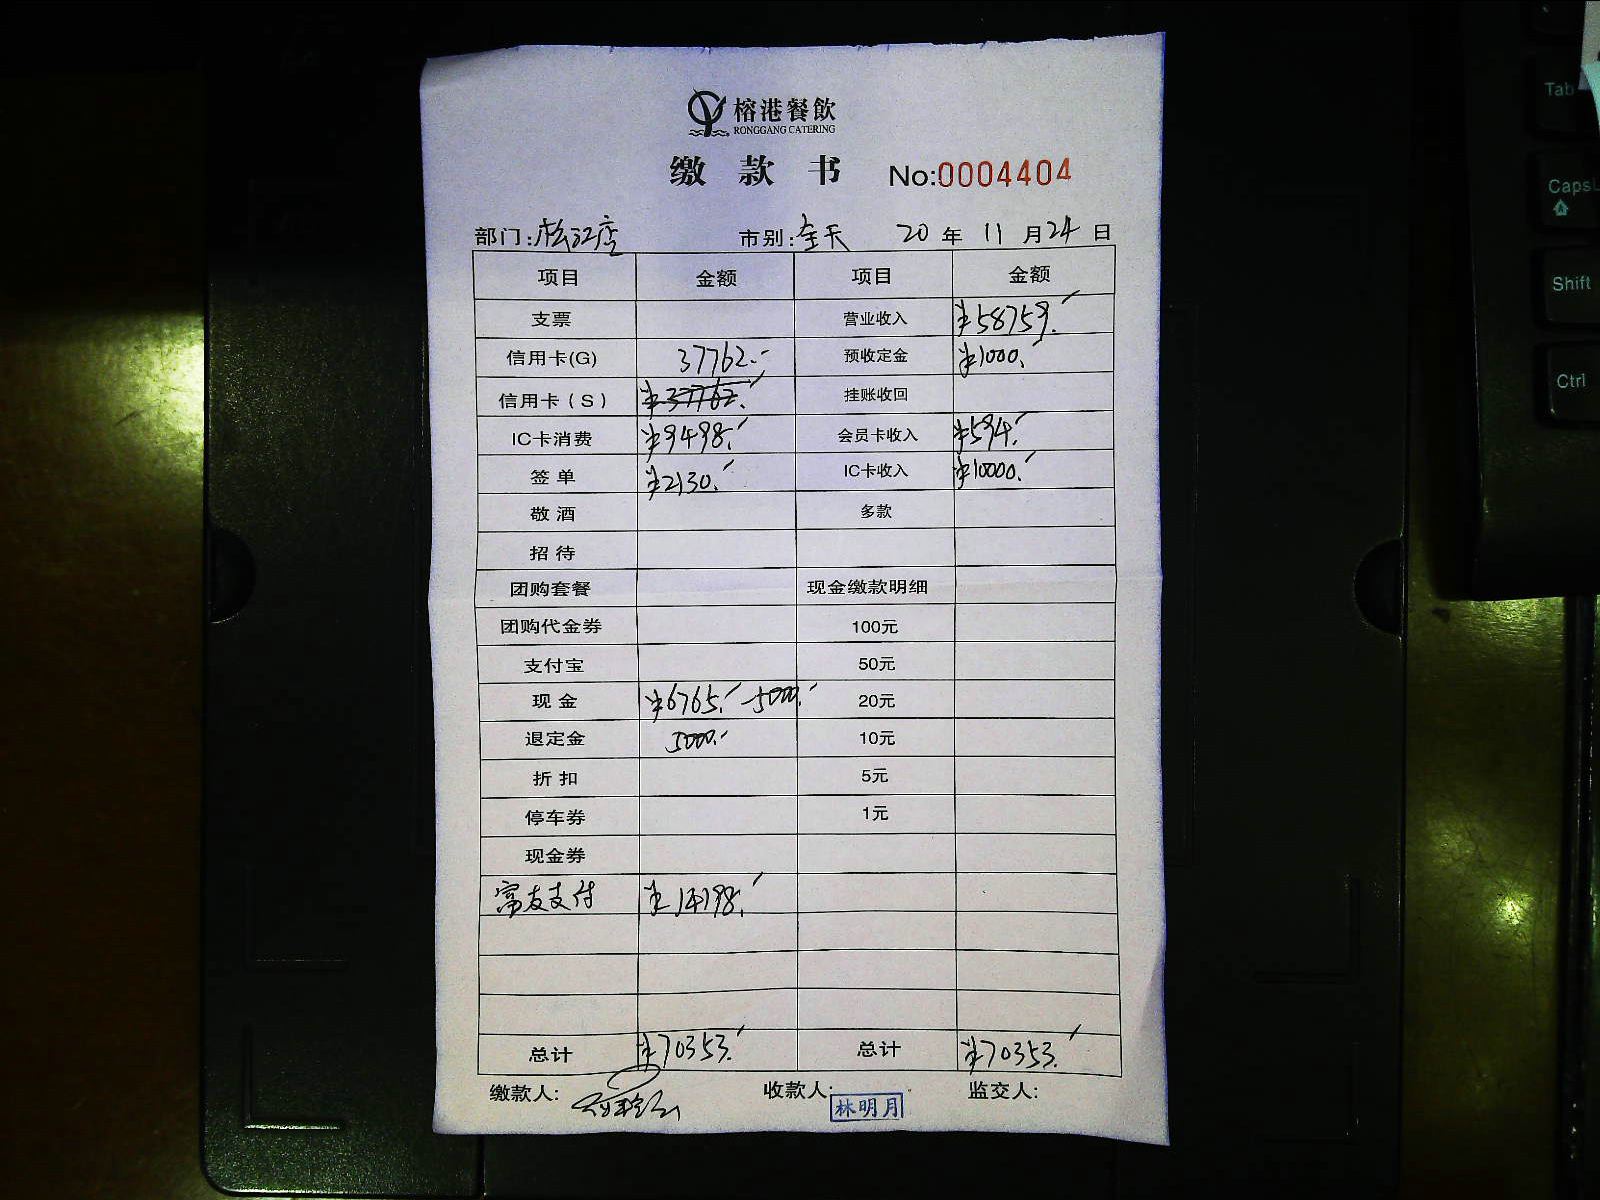 榕港餐飲
RONGGANG CATERING
缴款书 No:0004404
部门:松江店 市别:全天 20年11月24日
项目 金额 项目 金额
支票 营业收入 ¥58759.
信用卡(G) 37762.- 预收定金 ¥1000.
信用卡(S) ¥37762. 挂账收回
IC卡消费 ¥9498. 会员卡收入 ¥594.
签单 ¥2130. IC卡收入 ¥10000.
敬酒 多款
招待
团购套餐 现金缴款明细
团购代金券 100元
支付宝 50元
现金 ¥6765. -5000. 20元
退定金 5000.- 10元
折扣 5元
停车券 1元
现金券
富友支付 ¥14198.
总计 ¥70353. 总计 ¥70353.
缴款人: 收款人: 监交人:
林明月
Tab
Caps
Shift
Ctrl